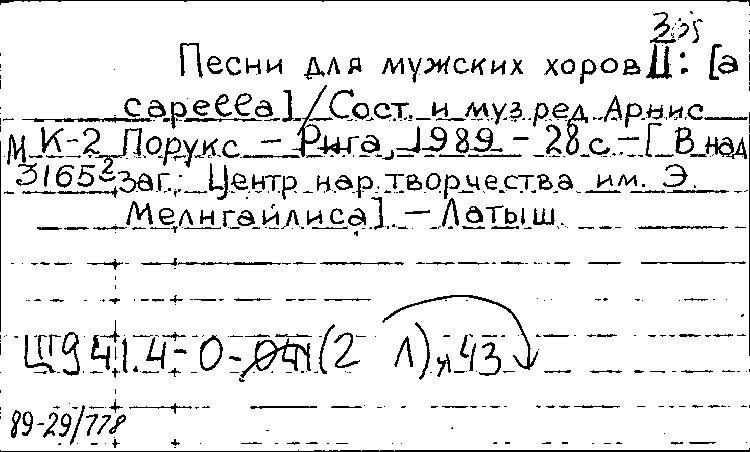 Песни для мужских хоров II: [a
capella] / Сост. и муз ред Арнис
М К-2 Порукс — Рига, 1989 – 28 с — [ В над
3165² заг.: Центр нар. творчества им. Э.
Мелнгайлиса]. — Латыш
Щ941.4-0-041(2 Л)я43
89-29/778